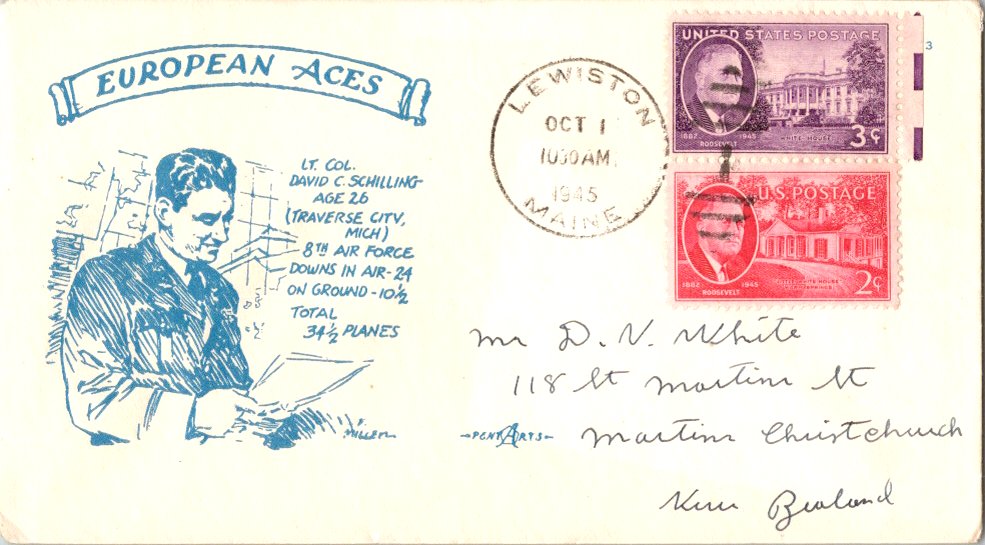 EUROPEAN ACES
LT. COL.
DAVID C. SCHILLING
AGE 26
(TRAVERSE CITY,
MICH)
8TH AIR FORCE
DOWNS IN AIR - 24
ON GROUND - 10 1/2
TOTAL
34 1/2 PLANES
MILLER
PENT ARTS
LEWISTON
OCT 1
1030 AM
1945
MAINE
UNITED STATES POSTAGE
1882 1945
ROOSEVELT
WHITE HOUSE
3¢
3
U.S. POSTAGE
1882 1945
ROOSEVELT
LITTLE WHITE HOUSE
WARM SPRINGS
2¢
Mr D. V. White
118 St Martins St
Martins Christchurch
New Zealand